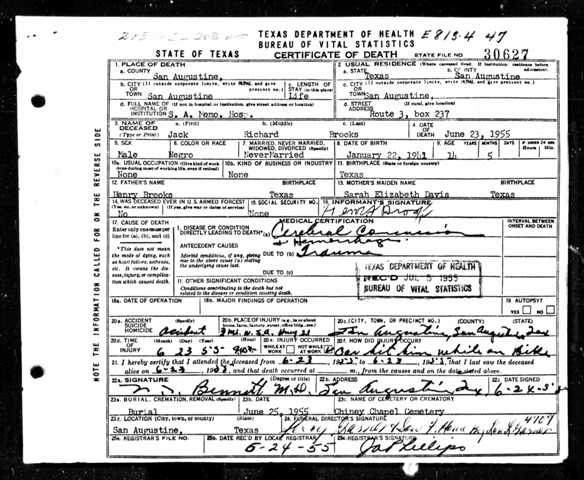 TEXAS DEPARTMENT OF HEALTH E813.4 47
BUREAU OF VITAL STATISTICS
STATE OF TEXAS CERTIFICATE OF DEATH STATE FILE NO. 30627
1. PLACE OF DEATH 2. USUAL RESIDENCE (Where deceased lived. If institution: residence before admission)
a. COUNTY San Augustine, a. STATE Texas b. COUNTY San Augustine
b. CITY (If outside corporate limits, write RURAL and give precinct no.) OR TOWN San Augustine c. LENGTH OF STAY (in this place) Life c. CITY (If outside corporate limits, write RURAL and give precinct no.) OR TOWN San Augustine,
d. FULL NAME OF (If not in hospital or institution, give street address or location) HOSPITAL OR INSTITUTION S. A. Memo. Hos. d. STREET ADDRESS (If rural, give location) Route 3, box 237
3. NAME OF DECEASED (Type or Print) a. (First) Jack b. (Middle) Richard c. (Last) Brooks 4. DATE OF DEATH June 23, 1955
5. SEX Male 6. COLOR OR RACE Negro 7. MARRIED, NEVER MARRIED, WIDOWED, DIVORCED (Specify) NeverMarried 8. DATE OF BIRTH January 22, 1941 9. AGE 14 5
10a. USUAL OCCUPATION (Give kind of work done during most of working life, even if retired) None 10b. KIND OF BUSINESS OR INDUSTRY None 11. BIRTHPLACE Texas
12. FATHER'S NAME Henry Brooks BIRTHPLACE Texas 13. MOTHER'S MAIDEN NAME Sarah Elizabeth Davis BIRTHPLACE Texas
14. WAS DECEASED EVER IN U.S. ARMED FORCES? (Yes, no, or unknown) (If yes, give war or dates of service) No 15. SOCIAL SECURITY NO. None 16. INFORMANT'S SIGNATURE Henry Brooks
17. CAUSE OF DEATH MEDICAL CERTIFICATION INTERVAL BETWEEN ONSET AND DEATH
Enter only one cause per line for (a), (b), and (c) I. DISEASE OR CONDITION DIRECTLY LEADING TO DEATH* (a) Cerebral Concussion
& Hemorrhage
ANTECEDENT CAUSES DUE TO (b) Trauma
*This does not mean the mode of dying, such as heart failure, asthenia, etc. It means the disease, injury, or complication which caused death. Morbid conditions, if any, giving rise to the above cause (a) stating the underlying cause last.
DUE TO (c)
TEXAS DEPARTMENT OF HEALTH
REC'D JUL 5 1955
BUREAU OF VITAL STATISTICS
II. OTHER SIGNIFICANT CONDITIONS
Conditions contributing to the death but not related to the disease or condition causing death.
18a. DATE OF OPERATION 18b. MAJOR FINDINGS OF OPERATION 19. AUTOPSY? YES NO
20a. ACCIDENT SUICIDE HOMICIDE Accident 20b. PLACE OF INJURY 20c. (CITY, TOWN, OR PRECINCT NO.) (COUNTY) (STATE) San Augustine, San Augustine, Tex
20d. TIME OF INJURY 6 23 55 20e. INJURY OCCURRED WHILE AT WORK NOT WHILE AT WORK 20f. HOW DID INJURY OCCUR? Car hit him while on Bike
21. I hereby certify that I attended the deceased from 6-23 to 6-23, that I last saw the deceased
alive on 6-23
22a. SIGNATURE Bennett M.D. (Degree or title) 22b. ADDRESS San Augustine, Tex 22c. DATE SIGNED 6-24-55
23a. BURIAL, CREMATION, REMOVAL (Specify) Burial 23b. DATE June 25, 1955 23c. NAME OF CEMETERY OR CREMATORY Chiney Chapel Cemetery
23d. LOCATION (City, town, or county) (State) San Augustine, Texas 24. FUNERAL DIRECTOR'S SIGNATURE 4707
25a. REGISTRAR'S FILE NO. 25b. DATE REC'D BY LOCAL REGISTRAR 6-24-55 25c. REGISTRAR'S SIGNATURE Phillips
NOTE THE INFORMATION CALLED FOR ON THE REVERSE SIDE